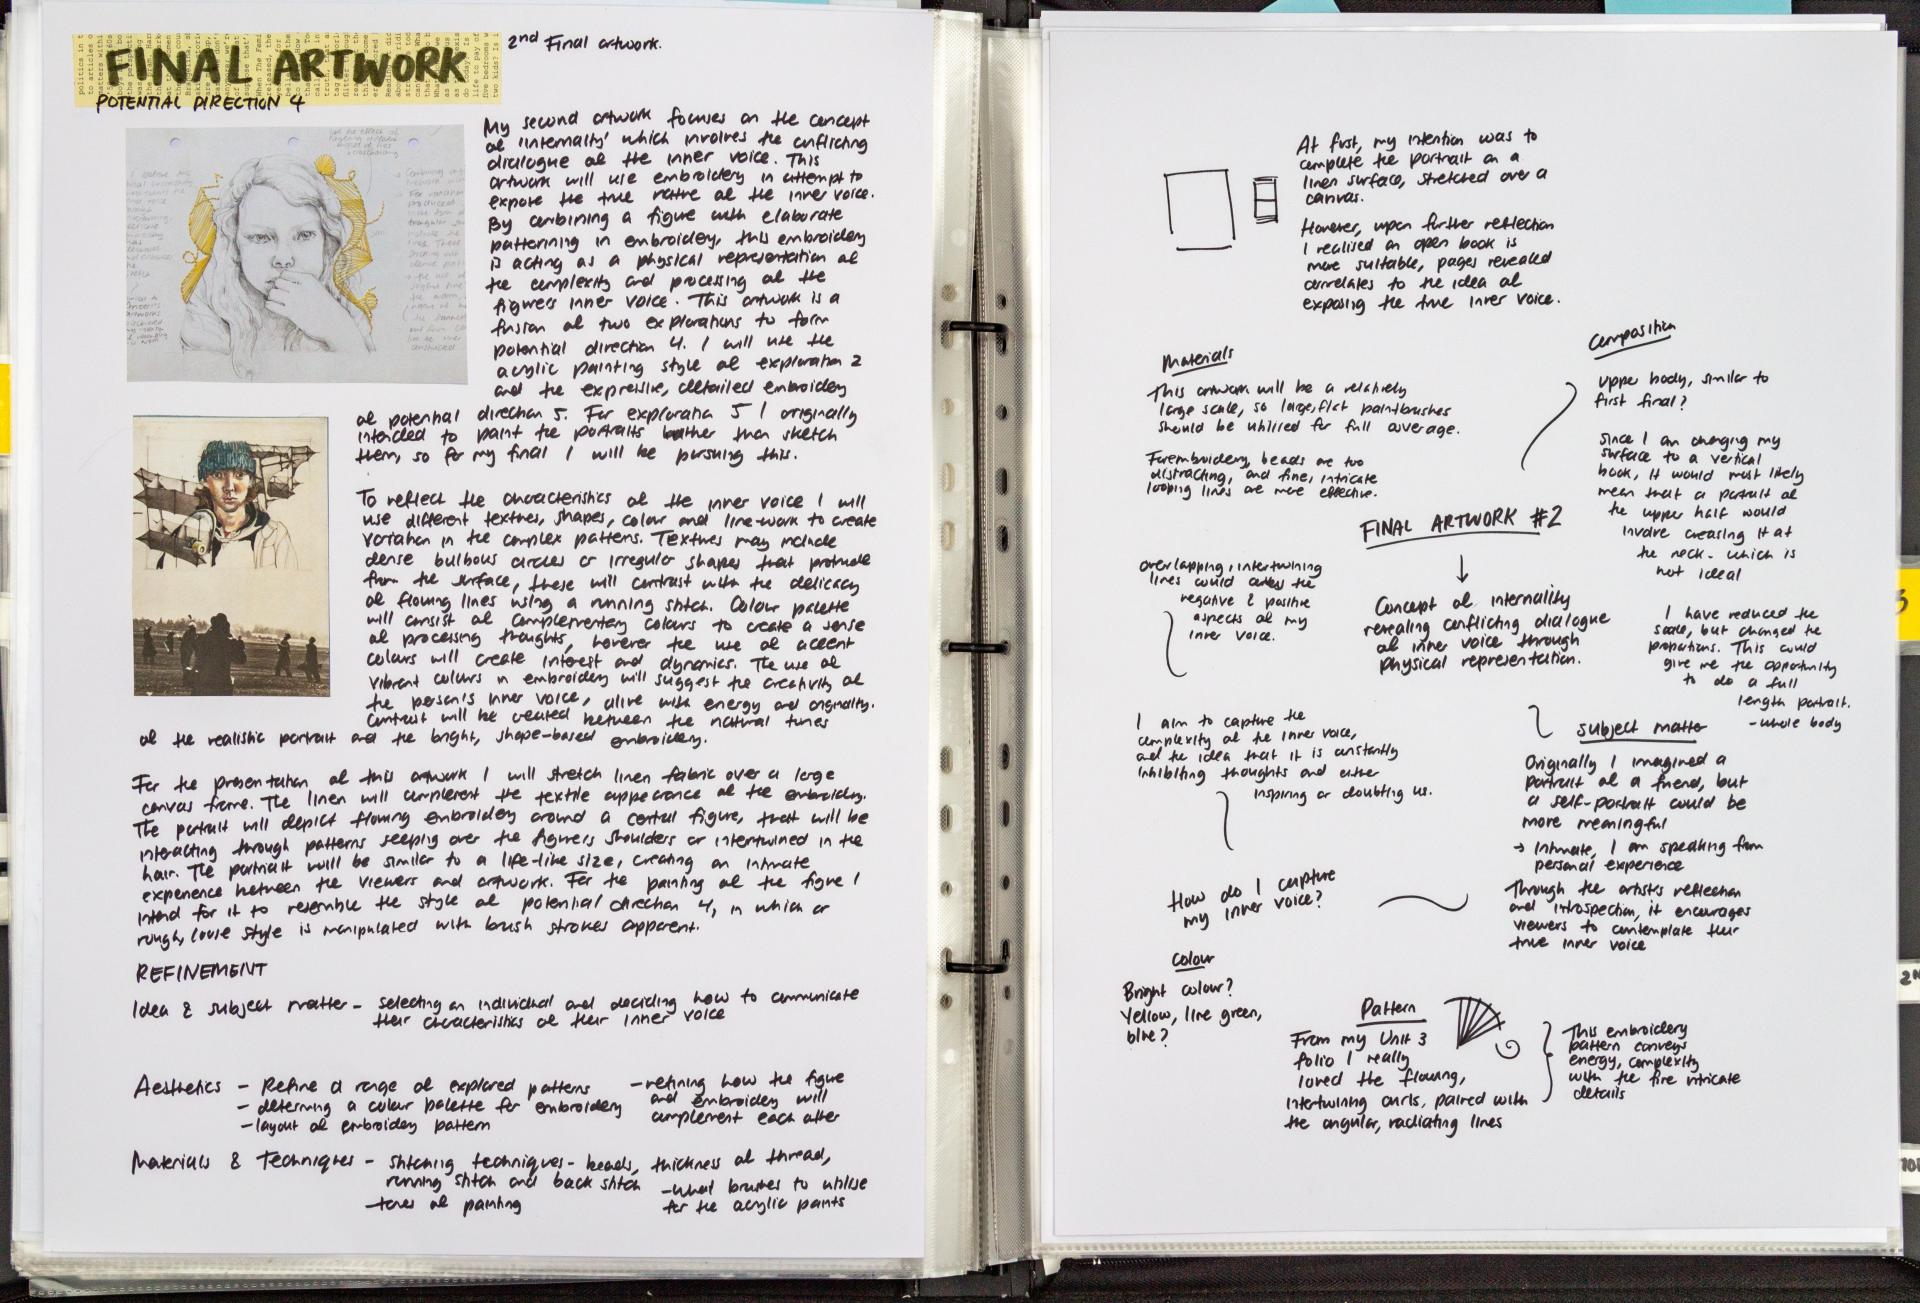 FINAL ARTWORK
2nd Final artwork.
POTENTIAL DIRECTION 4
My second artwork focuses on the concept
of 'internality' which involves the conflicting
dialogue of the inner voice. This
artwork will use embroidery in attempt to
expose the true nature of the inner voice.
By combining a figure with elaborate
patterning in embroidery, this embroidery
is acting as a physical representation of
the complexity and processing of the
figure's inner voice. This artwork is a
fusion of two explorations to form
potential direction 4. I will use the
acrylic painting style of exploration 2
and the expressive, detailed embroidery
of potential direction 5. For exploration 5 I originally
intended to paint the portraits rather than sketch
them, so for my final I will be pursuing this.
To reflect the characteristics of the inner voice I will
use different textures, shapes, colour and line-work to create
variation in the complex patterns. Textures may include
dense bulbous circles or irregular shapes that protrude
from the surface, these will contrast with the delicacy
of flowing lines using a running stitch. Colour palette
will consist of complementary colours to create a sense
of processing thoughts, however the use of accent
colours will create interest and dynamics. The use of
vibrant colours in embroidery will suggest the creativity of
the person's inner voice, alive with energy and originality.
Contrast will be created between the natural tones
of the realistic portrait and the bright, shape-based embroidery.
For the presentation of this artwork I will stretch linen fabric over a large
canvas frame. The linen will complement the textile appearance of the embroidery.
The portrait will depict flowing embroidery around a central figure, that will be
interacting through patterns seeping over the figure's shoulders or intertwined in the
hair. The portrait will be similar to a life-like size, creating an intimate
experience between the viewers and artwork. For the painting of the figure I
intend for it to resemble the style of potential direction 4, in which a
rough, loose style is manipulated with brush strokes apparent.
REFINEMENT
Idea & subject matter - selecting an individual and deciding how to communicate
their characteristics of their inner voice
Aesthetics - Refine a range of explored patterns
- determing a colour palette for embroidery
- layout of embroidery pattern
- refining how the figure
and embroidery will
complement each other
Materials & Techniques - stitching techniques - beads, thickness of thread,
running stitch and back stitch
- tones of painting
- what brushes to utilise
for the acrylic paints
At first, my intention was to
complete the portrait on a
linen surface, stretched over a
canvas.
However, upon further reflection
I realised an open book is
more suitable, pages revealed
correlates to the idea of
exposing the true inner voice.
Materials
This artwork will be a relatively
large scale, so large, flat paintbrushes
should be utilised for full coverage.
For embroidery, beads are too
distracting, and fine, intricate
looping lines are more effective.
Composition
Upper body, similar to
first final?
Since I am changing my
surface to a vertical
book, it would most likely
mean that a portrait of
the upper half would
involve creasing it at
the neck - which is
not ideal
I have reduced the
scale, but changed the
proportions. This could
give me the opportunity
to do a full
length portrait.
- whole body
FINAL ARTWORK #2
Concept of internality
revealing conflicting dialogue
of inner voice through
physical representation.
overlapping, intertwining
lines could address the
negative & positive
aspects of my
inner voice.
I aim to capture the
complexity of the inner voice,
and the idea that it is constantly
inhibiting thoughts and either
inspiring or doubting us.
How do I capture
my inner voice?
Subject matter
Originally I imagined a
portrait of a friend, but
a self-portrait could be
more meaningful
→ Intimate, I am speaking from
personal experience
Through the artist's reflection
and introspection, it encourages
viewers to contemplate their
true inner voice
Colour
Bright colour?
Yellow, lime green,
blue?
Pattern
From my Unit 3
folio I really
loved the flowing,
intertwining curls, paired with
the angular, radiating lines
This embroidery
pattern conveys
energy, complexity
with the fine intricate
details